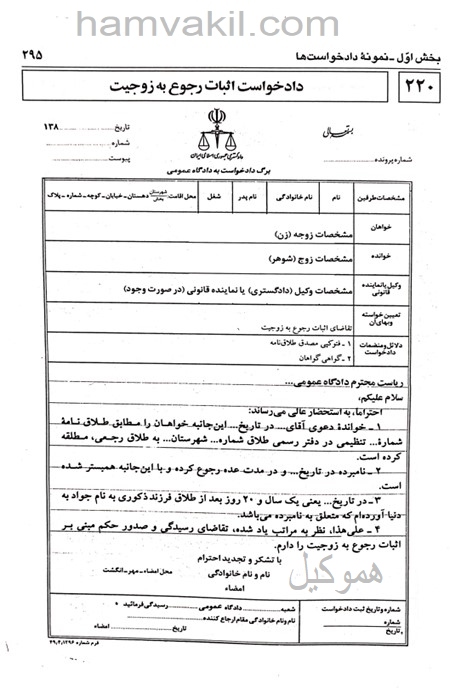 hamvakil.com
بخش اوّل ـ نمونهٔ دادخواست‌ها ۲۹۵
۲۲۰ دادخواست اثبات رجوع به زوجیت
بسمه تعالی
تاریخ ........ ۱۳۸
شماره ........
پیوست ........
شماره پرونده ........
دادگستری جمهوری اسلامی ایران
برگ دادخواست به دادگاه عمومی
مشخصات طرفین نام نام خانوادگی نام پدر شغل محل اقامت شهرستان بخش دهستان ـ خیابان ـ کوچه ـ شماره ـ پلاک
خواهان مشخصات زوجه (زن)
خوانده مشخصات زوج (شوهر)
وکیل یا نماینده قانونی مشخصات وکیل (دادگستری) یا نماینده قانونی (در صورت وجود)
تعیین خواسته وبهای آن تقاضای اثبات رجوع به زوجیت
دلائل و منضمات دادخواست ۱ ـ فتوکپی مصدق طلاق‌نامه
۲ ـ گواهی گواهان
ریاست محترم دادگاه عمومی...
سلام علیکم،
احتراماً، به استحضار عالی می‌رساند:
۱ ـ خواندهٔ دعوی آقای.... در تاریخ... این‌جانبه خواهان را مطابق طلاق نامهٔ
شمارهٔ... تنظیمی در دفتر رسمی طلاق شماره... شهرستان... به طلاق رجعی، مطلقه
کرده است.
۲ ـ نامبرده در تاریخ... و در مدت عده رجوع کرده و با این‌جانبه همبستر شده
است.
۳ ـ در تاریخ... یعنی یک سال و ۲۰ روز بعد از طلاق فرزند ذکوری به نام جواد به
دنیا آورده‌ام که متعلق به نامبرده می‌باشد.
۴ ـ علی‌هذا، نظر به مراتب یاد شده، تقاضای رسیدگی و صدور حکم مبنی بر
اثبات رجوع به زوجیت را دارم.
با تشکر و تجدید احترام
نام و نام خانوادگی
امضاء
محل امضاء ـ مهر ـ انگشت
هموکیل
شماره و تاریخ ثبت دادخواست
شماره
تاریخ
شعبه ........ دادگاه عمومی ........ رسیدگی فرمائید
نام ونام خانوادگی مقام ارجاع کننده ........
تاریخ امضاء
فرم شماره ۴۹٫۴٫۱۲۹۶